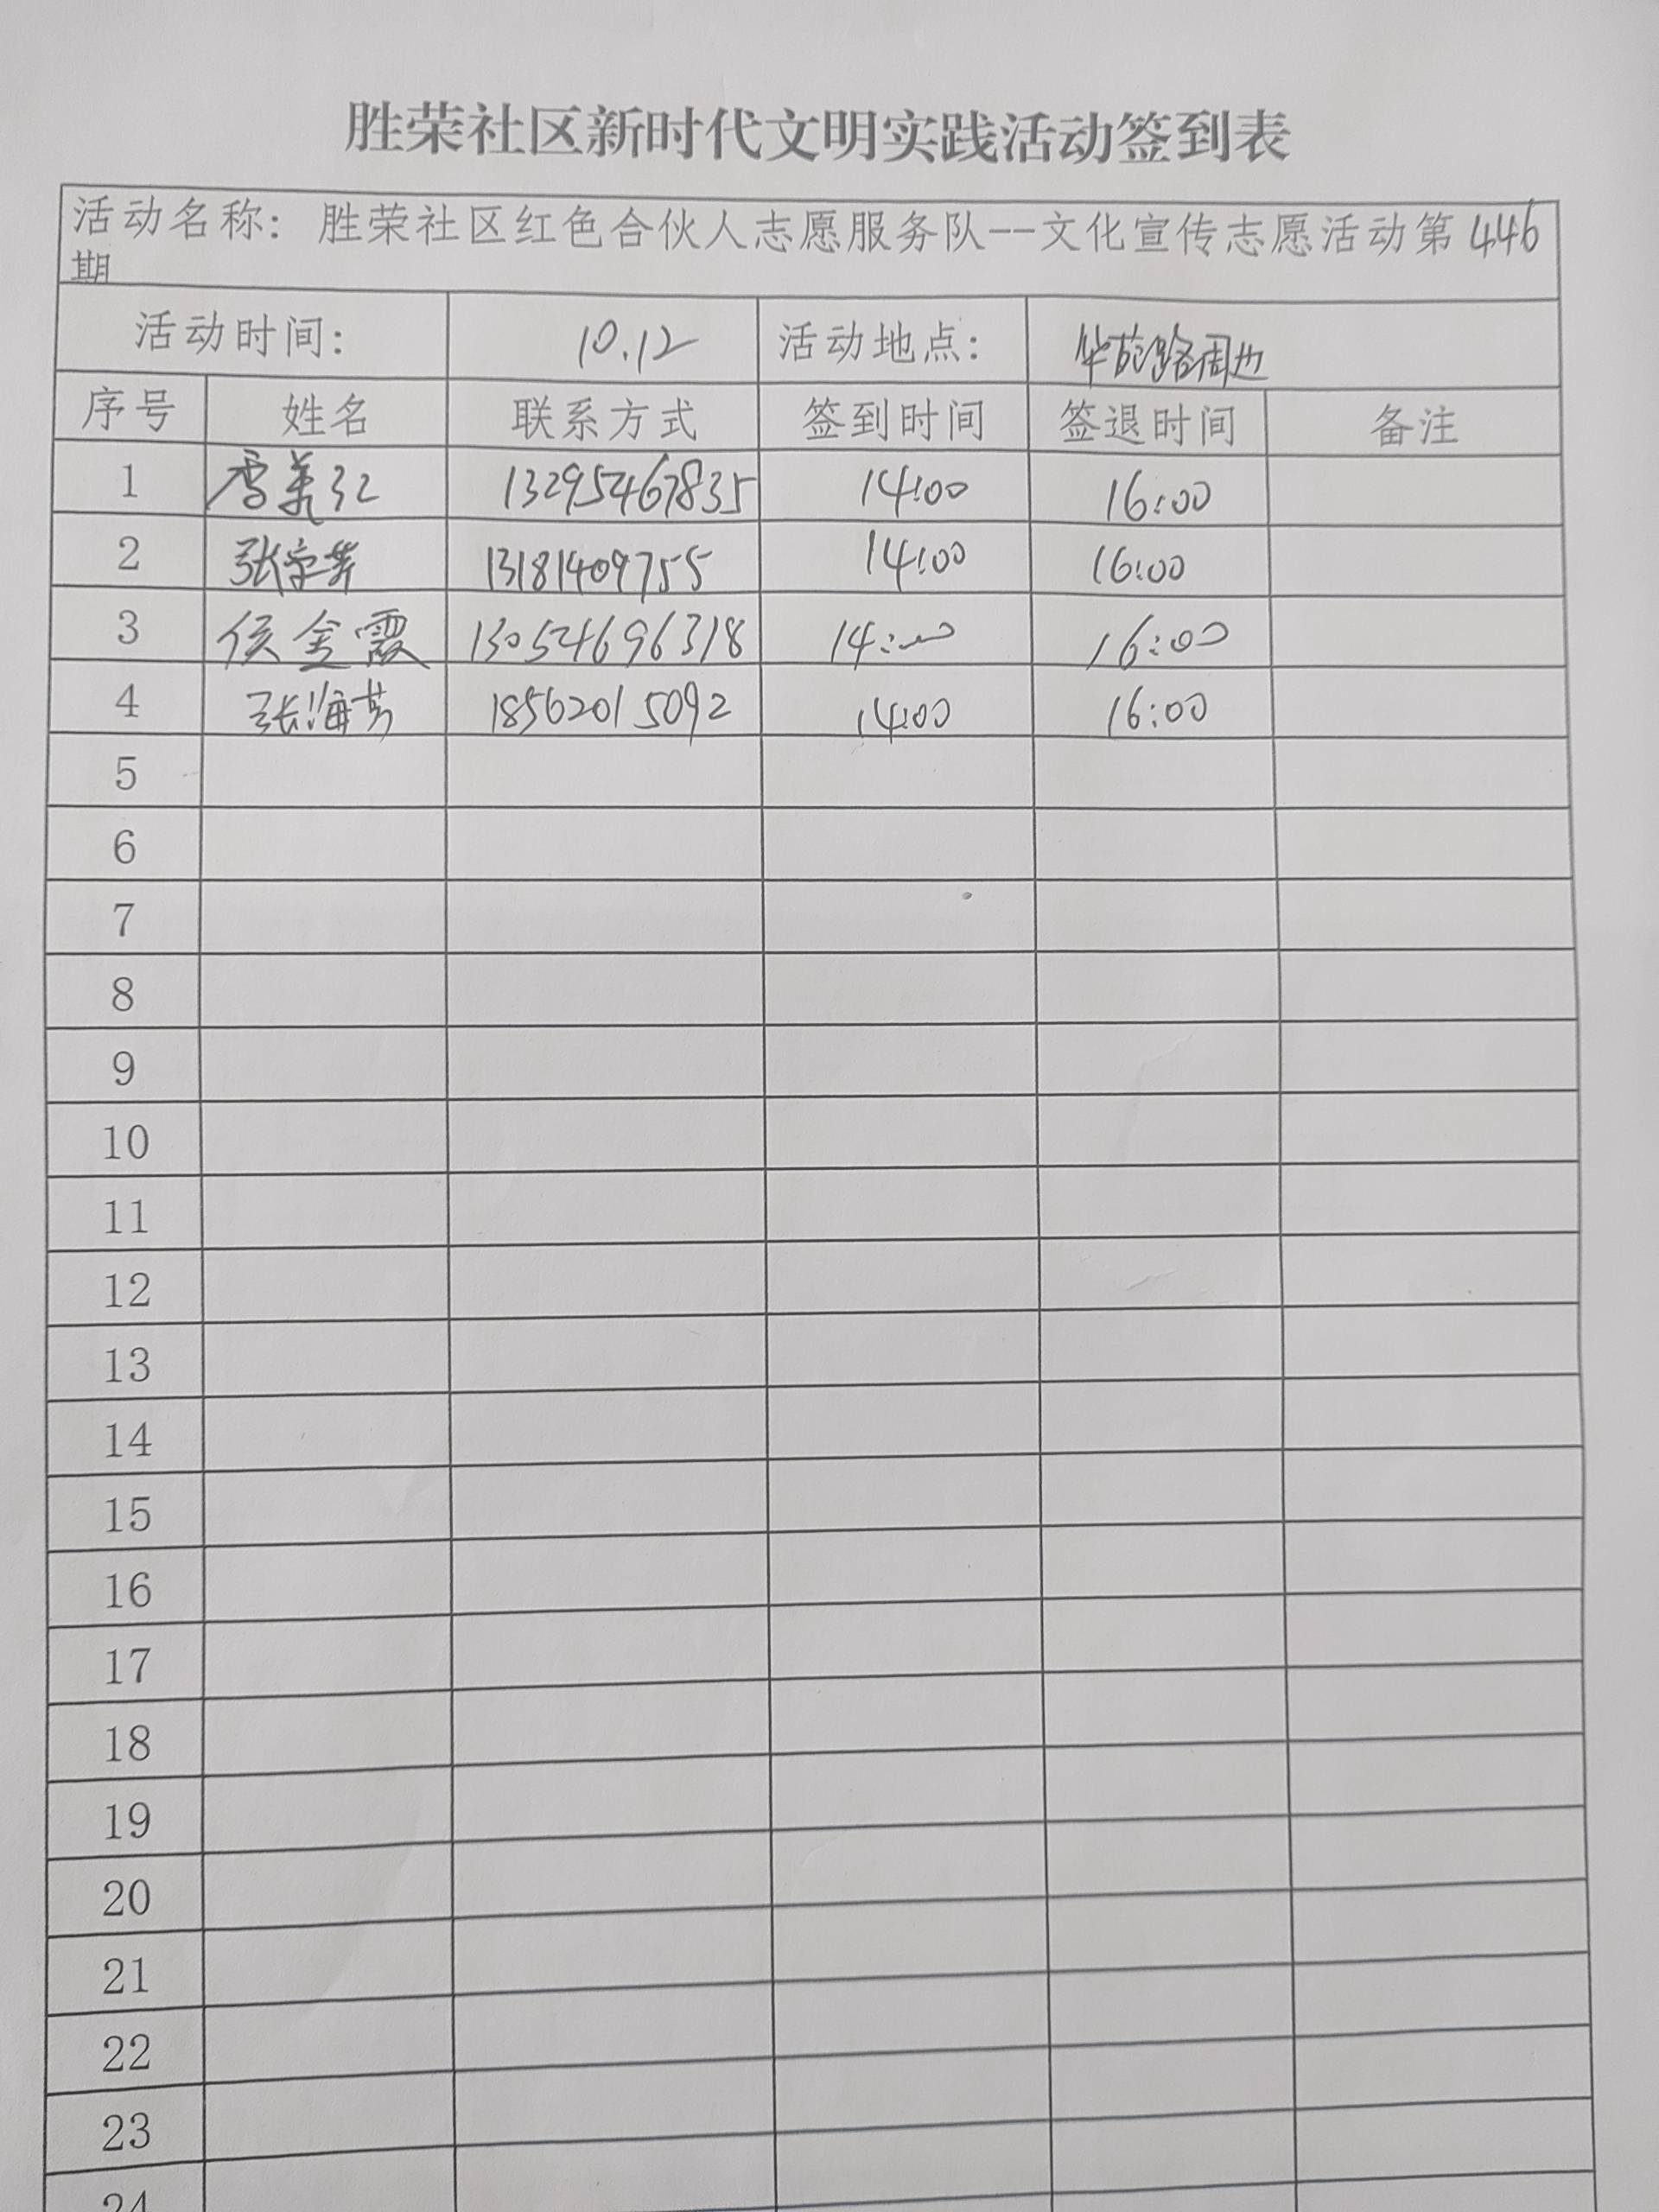 胜荣社区新时代文明实践活动签到表
活动名称: 胜荣社区红色合伙人志愿服务队--文化宣传志愿活动第446
期
活动时间: 10.12 活动地点: 路周边
序号 姓名 联系方式 签到时间 签退时间 备注
1 美红 13295467835 14:00 16:00
2 张 13181409755 14:00 16:00
3 侯金霞 13054696318 14:00 16:00
4 张海芳 18562015092 14:00 16:00
5
6
7
8
9
10
11
12
13
14
15
16
17
18
19
20
21
22
23
24